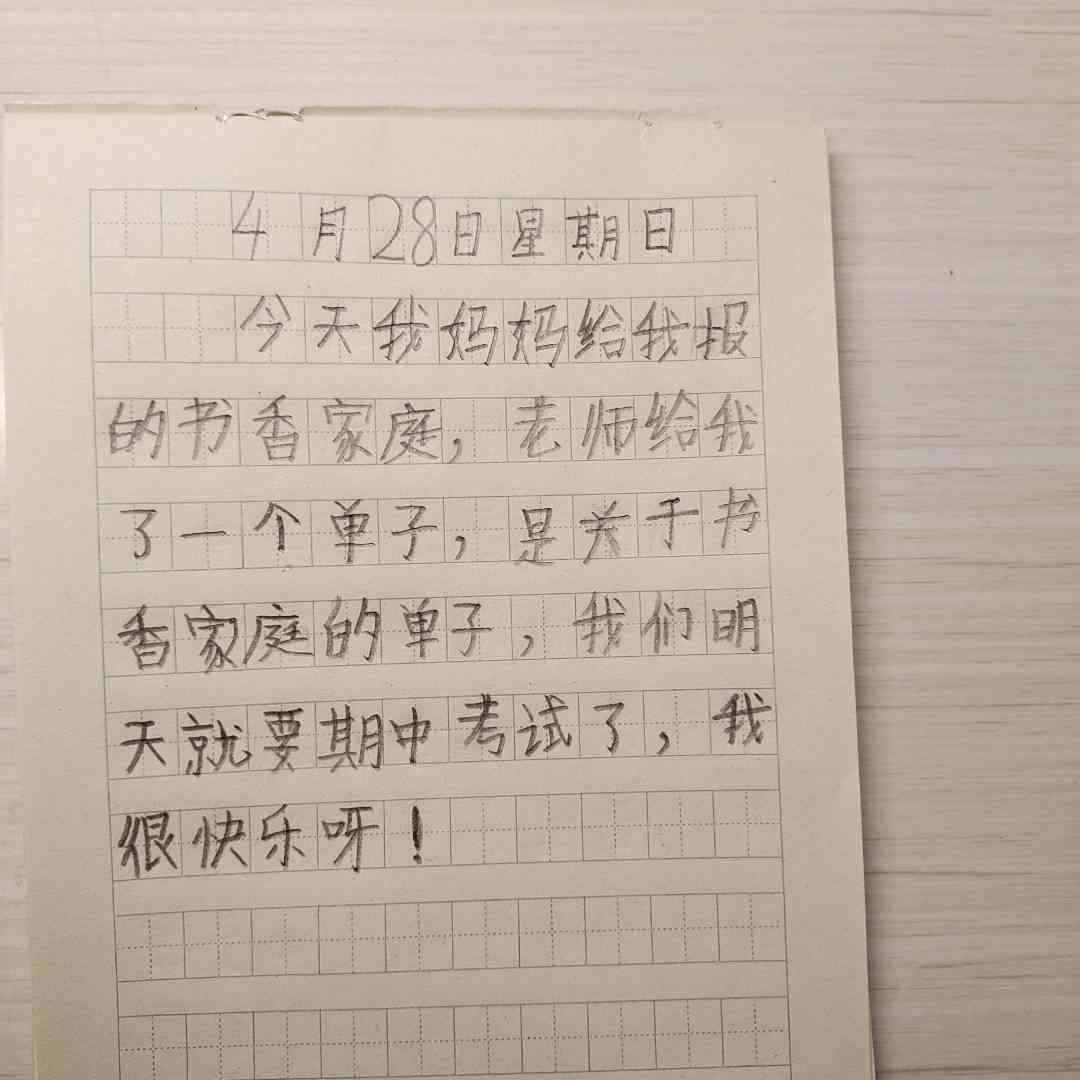 4月28日星期日
今天我妈妈给我报
的书香家庭，老师给我
了一个单子，是关于书
香家庭的单子，我们明
天就要期中考试了，我
很快乐呀！